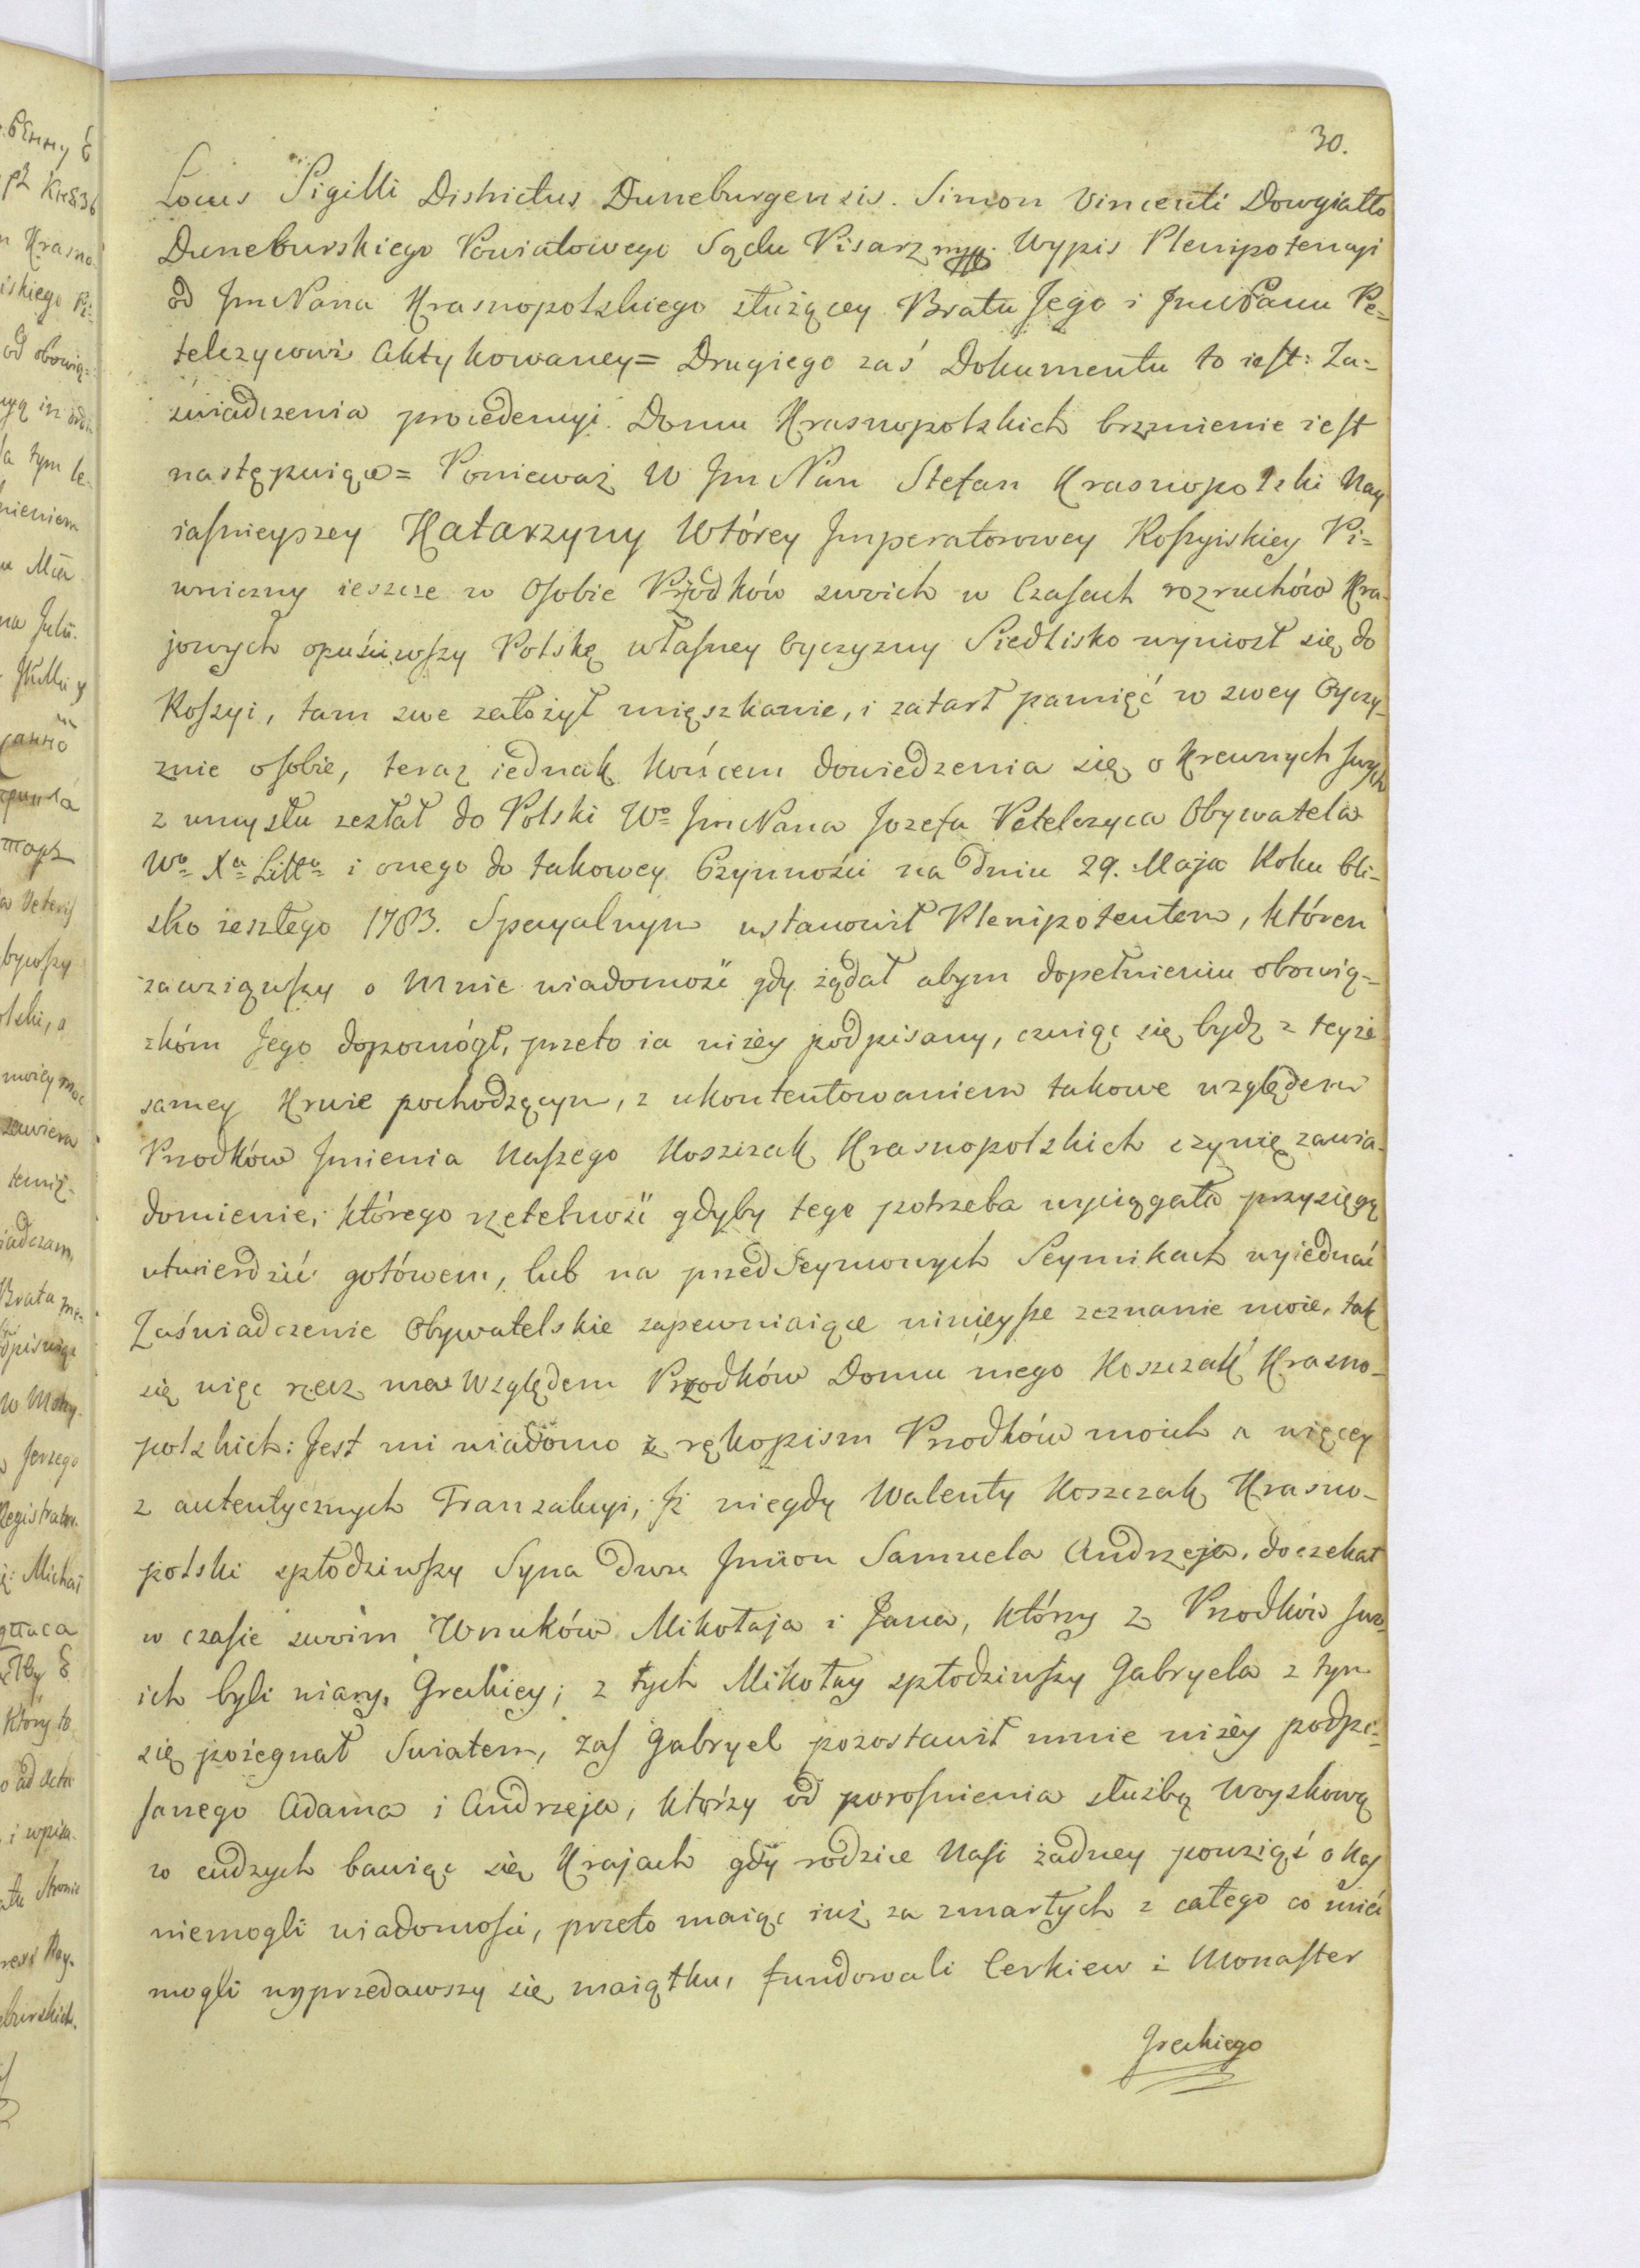 30.
Locus Sigilli Districtus Duneburgensis. Simon Vincenti Dowgiałło
Duneburskiego Powiatowego Sądu Pisarz mpp. Wypis Plenipotencyi
od Jm Pana Krasnopolskiego służącey Bratu Jego i Jmć Panu Pe=
telczycowi Aktykowaney = Drugiego zaś Dokumentu to iest: Za=
świadczenia procedencyi Domu Krasnopolskich brzmienie iest
następuiące = Ponieważ W Jm Pan Stefan Krasnopolski Nay
iaśnieyszey Katarzyny Wtórey Jmperatorowey Roſsyiskiey Pi=
wniczny ieszcze w Oſobie Przodków swoich w Czaſach rozruchów Kra-
jowych opuściwſzy Polskę właſney Oyczyzny Siedlisko wyniosł się do
Roſsyi, tam swe założył mięszkanie, i zatarł pamięć w swey Oyczy-
znie oſobie, teraz iednak końcem dowiedzenia się o Krewnych ſwych
z umysłu zesłał do Polski Wo Jm Pana Jozefa Petelczyca Obywatela
Wo Xa Litto i onego do takowey Czynności na dniu 29. Maja Roku bli-
sko zeszłego 1783. Specyalnym ustanowił Plenipotentem, któren
zawziąwſzy o Mnie wiadomość gdy żądał abym dopełnieniu obowią-
zkóm Jego dopomógł, przeto ia niżey podpisany, czuiąc się bydź z teyże
samey Krwie pochodzącym, z ukontentowaniem takowe względem
Przodków Jmienia Naſzego Koszczak Krasnopolskich czynię zawia-
domienie, którego rzetelność gdyby tego potrzeba wyciągała przysięgą
utwierdzić gotówem, lub na przedSeymowych Seymikach wyiednać
Zaświadczenie Obywatelskie zapewniaiące ninieyſze zeznanie moie, tak
się więc rzecz ma względem Przodków Domu mego Koszczak Krasno-
polskich: Jest mi wiadomo z rękopism Przodków moich a więcey
z autentycznych Tranzakcyi, Jż niegdy Walenty Koszczak Krasno-
polski spłodziwſzy Syna dwu Jmion Samuela Andrzeja, doczekał
w czaſie swoim Wnuków Mikołaja i Jana, którzy z Przodków ſwo-
ich byli wiary Greckiey; z tych Mikołay spłodziwſzy Gabryela z tym
się pożegnał Swiatem, Zaſ Gabryel pozostawił mnie niżey podpi-
ſanego Adama i Andrzeja, którzy od poroſnienia służbą Woyskową
w cudzych bawiąc się Krajach gdy rodzice Naſi żadney powziąść o Naſ
niemogli wiadomoſci, przeto maiąc iuż za zmarłych z całego co mieć
mogli wyprzedawszy się maiątku, fundowali Cerkiew i Monaſter
Greckiego